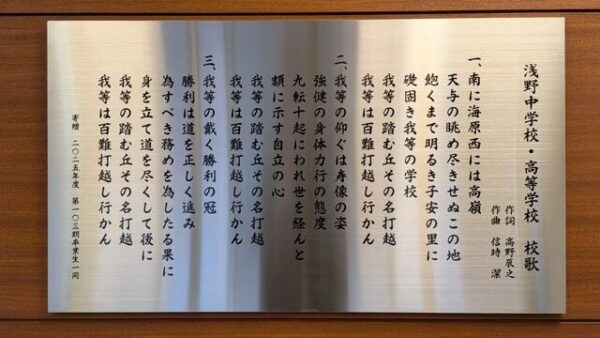 浅野中学校・高等学校 校歌
作詞 高野辰之
作曲 信時 潔
一、南に海原西には高嶺
天与の眺め尽きせぬこの地
飽くまで明るき子安の里に
礎固き我等の学校
我等の踏む丘その名打越
我等は百難打越し行かん
二、我等の仰ぐは寿像の姿
強健の身体力行の態度
九転十起にわれ世を経んと
額に示す自立の心
我等の踏む丘その名打越
我等は百難打越し行かん
三、我等の戴く勝利の冠
勝利は道を正しく進み
為すべき務めを為したる果に
身を立て道を尽くして後に
我等の踏む丘その名打越
我等は百難打越し行かん
寄贈 二〇二五年度 第一〇三期卒業生一同